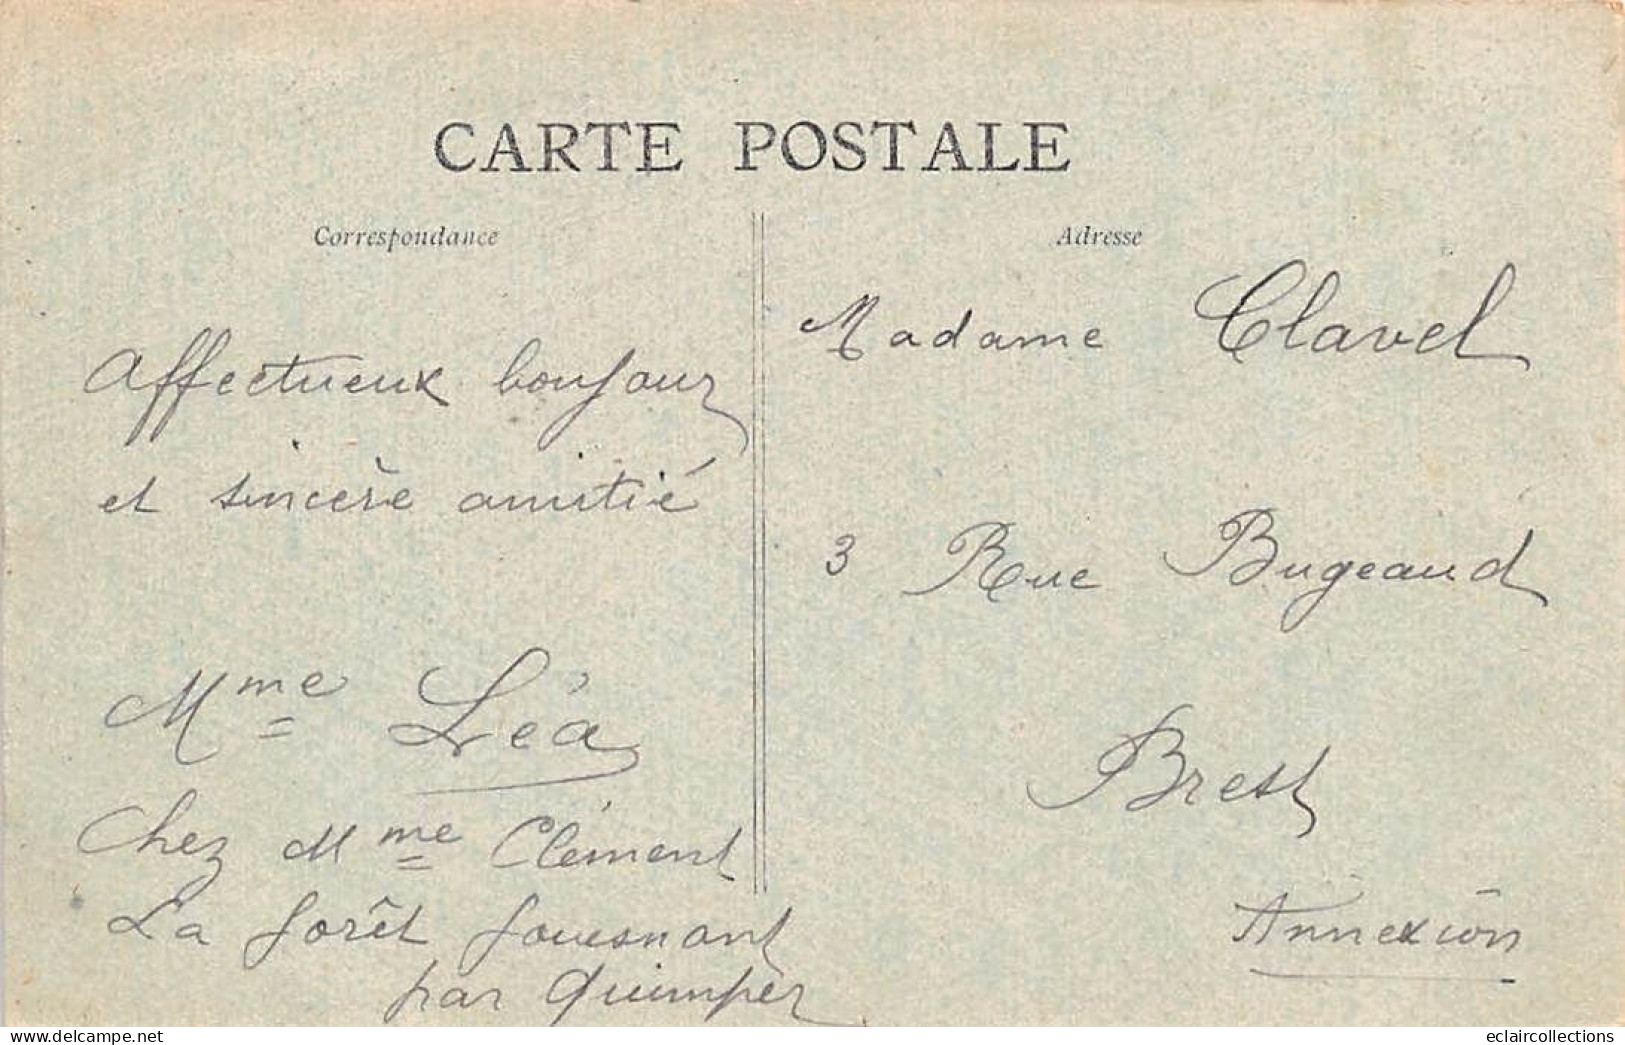 CARTE POSTALE
Correspondance
Affectueux bonjour
et sincère amitié
Mme Léa
Chez Mme Clément
La forêt fouesnant
par Quimper
Adresse
Madame Clavel
3 Rue Bugeaud
Brest
Annexion
eclaircollections